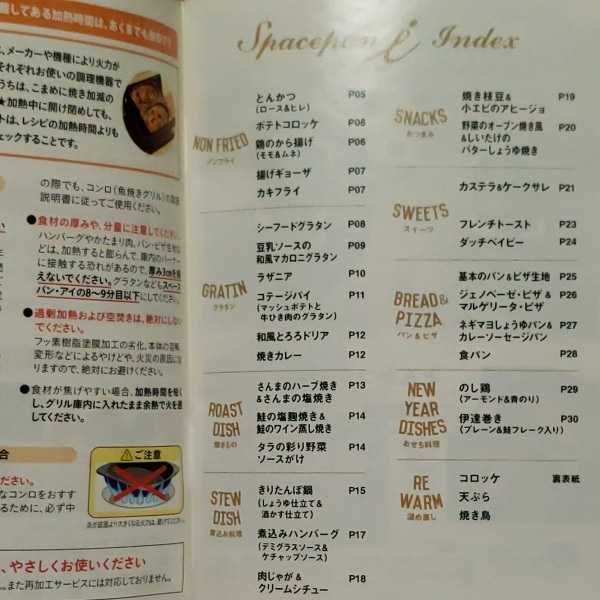 載してある加熱時間は、あくまでも
、メーカーや機種により火力が
それぞれお使いの調理機器で
うちは、こまめに焼き加減の
★加熱中に開け閉めしても、
トは、レシピの加熱時間よりも
ェックすることです。
の際でも、コンロ(魚焼きグリル)の取扱
説明書に従ってご使用ください。
●食材の厚みや、分量に注意してください。
ハンバーグやかたまり肉、パン・ピザ生地な
どは、加熱すると膨らんで、庫内のバーナー
に接触する恐れがあるので、厚み3cmを超
えないでください。グラタンなどもスペース
パン・アイの8〜9分目以下にしてください。
●過剰加熱および空焚きは、絶対にしない
でください。
フッ素樹脂塗膜加工の劣化、本体の
変形などによるやけどや、火災の原因にな
りますので、絶対にお避けください。
●食材が焦げやすい場合、加熱時間を短く
し、グリル庫内に入れたまま余熱で火を通
してください。
合
ださい。
なコンロをおすす
るために、必ず中
ご注意
、やさしくお使いください
。また再加工サービスには対応しておりません。
Spacepan i Index
NON FRIED
ノンフライ
とんかつ P05
(ロース&ヒレ)
ポテトコロッケ P06
鶏のから揚げ P06
(モモ&ムネ)
揚げギョーザ P07
カキフライ P07
GRATIN
グラタン
シーフードグラタン P08
豆乳ソースの P09
和風マカロニグラタン
ラザニア P10
コテージパイ P11
(マッシュポテトと
牛ひき肉のグラタン)
和風とろろドリア P12
焼きカレー P12
ROAST
DISH
焼きもの
さんまのハーブ焼き P13
&さんまの塩焼き
鮭の塩麹焼き& P14
鮭のワイン蒸し焼き
タラの彩り野菜 P14
ソースがけ
STEW
DISH
煮込み料理
きりたんぽ鍋 P15
(しょうゆ仕立て&
酒かす仕立て)
煮込みハンバーグ P17
(デミグラスソース&
ケチャップソース)
肉じゃが& P18
クリームシチュー
SNACKS
おつまみ
焼き枝豆& P19
小エビのアヒージョ
野菜のオーブン焼き風 P20
&しいたけの
バターしょうゆ焼き
SWEETS
スイーツ
カステラ&ケークサレ P21
フレンチトースト P23
ダッチベイビー P24
BREAD&
PIZZA
パン&ピザ
基本のパン&ピザ生地 P25
ジェノベーゼ・ピザ& P26
マルゲリータ・ピザ
ネギマヨしょうゆパン& P27
カレーソーセージパン
食パン P28
NEW
YEAR
DISHES
おせち料理
のし鶏 P29
(アーモンド&青のり)
伊達巻き P30
(プレーン&鮭フレーク入り)
RE
WARM
温め直し
コロッケ 裏表紙
天ぷら
焼き鳥